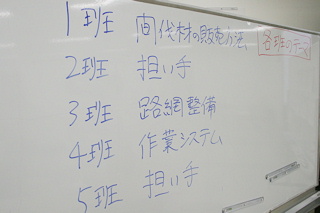 1班 間伐材の販売方法
各班のテーマ
2班 担い手
3班 路網整備
4班 作業システム
5班 担い手